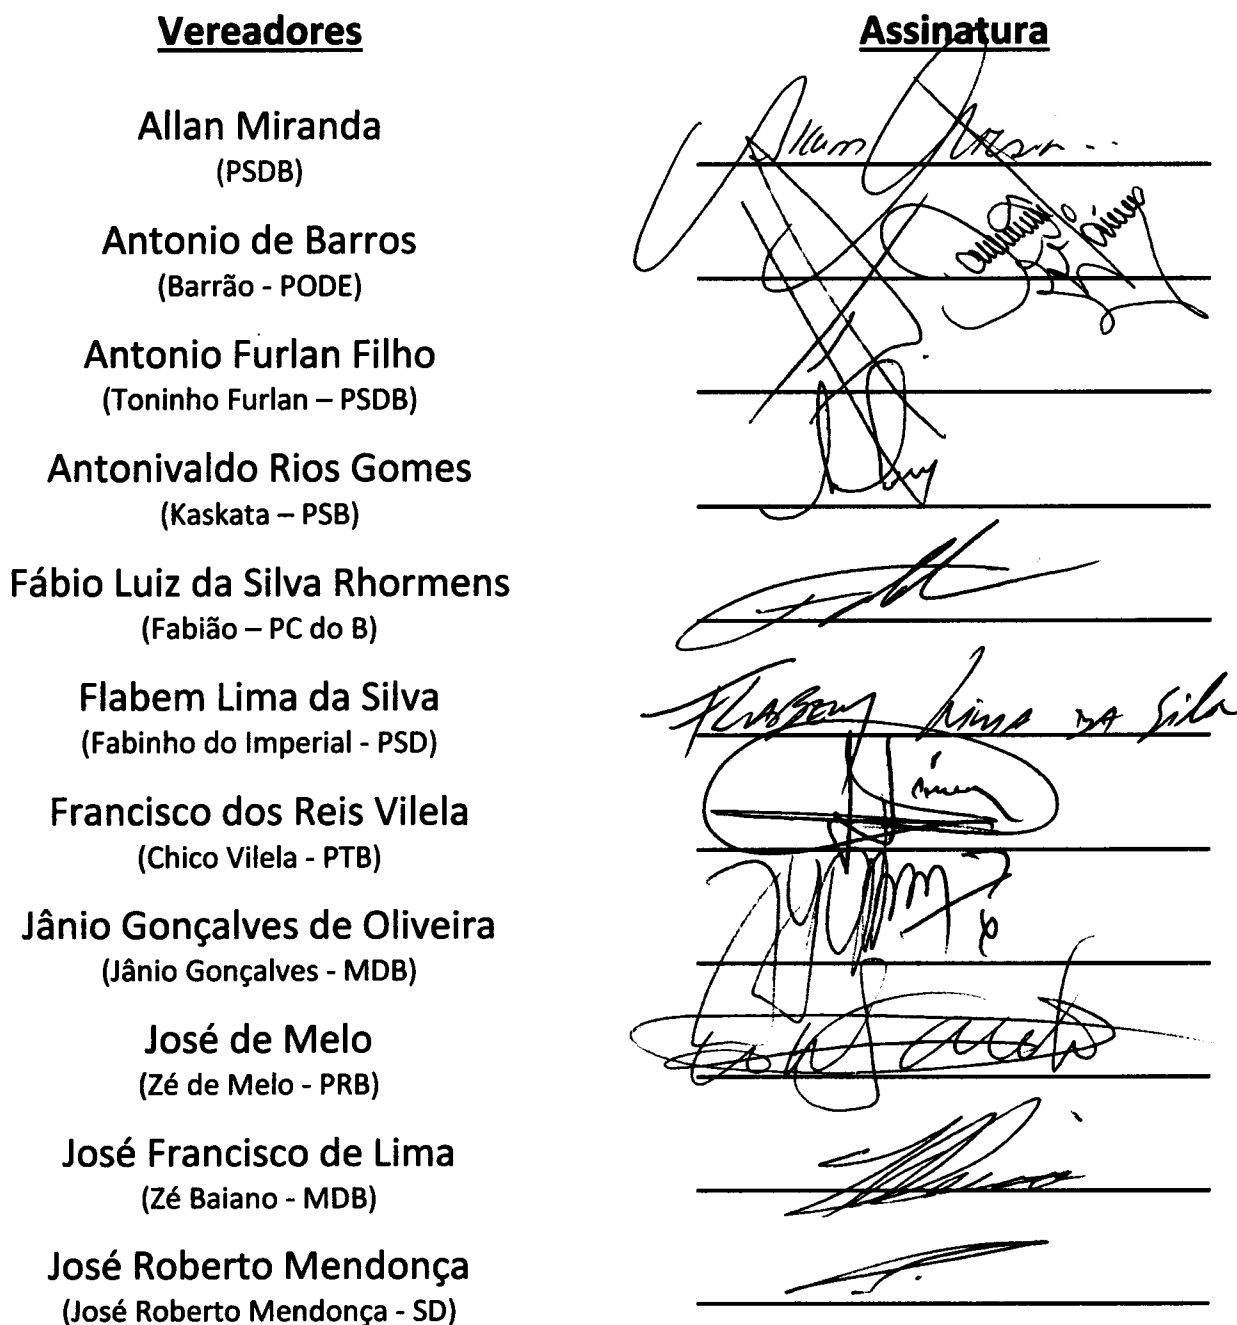 Vereadores Assinatura
Allan Miranda
(PSDB)
Antonio de Barros
(Barrão - PODE)
Antonio Furlan Filho
(Toninho Furlan – PSDB)
Antonivaldo Rios Gomes
(Kaskata – PSB)
Fábio Luiz da Silva Rhormens
(Fabião – PC do B)
Flabem Lima da Silva Flabem Lima da Silva
(Fabinho do Imperial - PSD)
Francisco dos Reis Vilela
(Chico Vilela - PTB)
Jânio Gonçalves de Oliveira
(Jânio Gonçalves - MDB)
José de Melo
(Zé de Melo - PRB)
José Francisco de Lima
(Zé Baiano - MDB)
José Roberto Mendonça
(José Roberto Mendonça - SD)